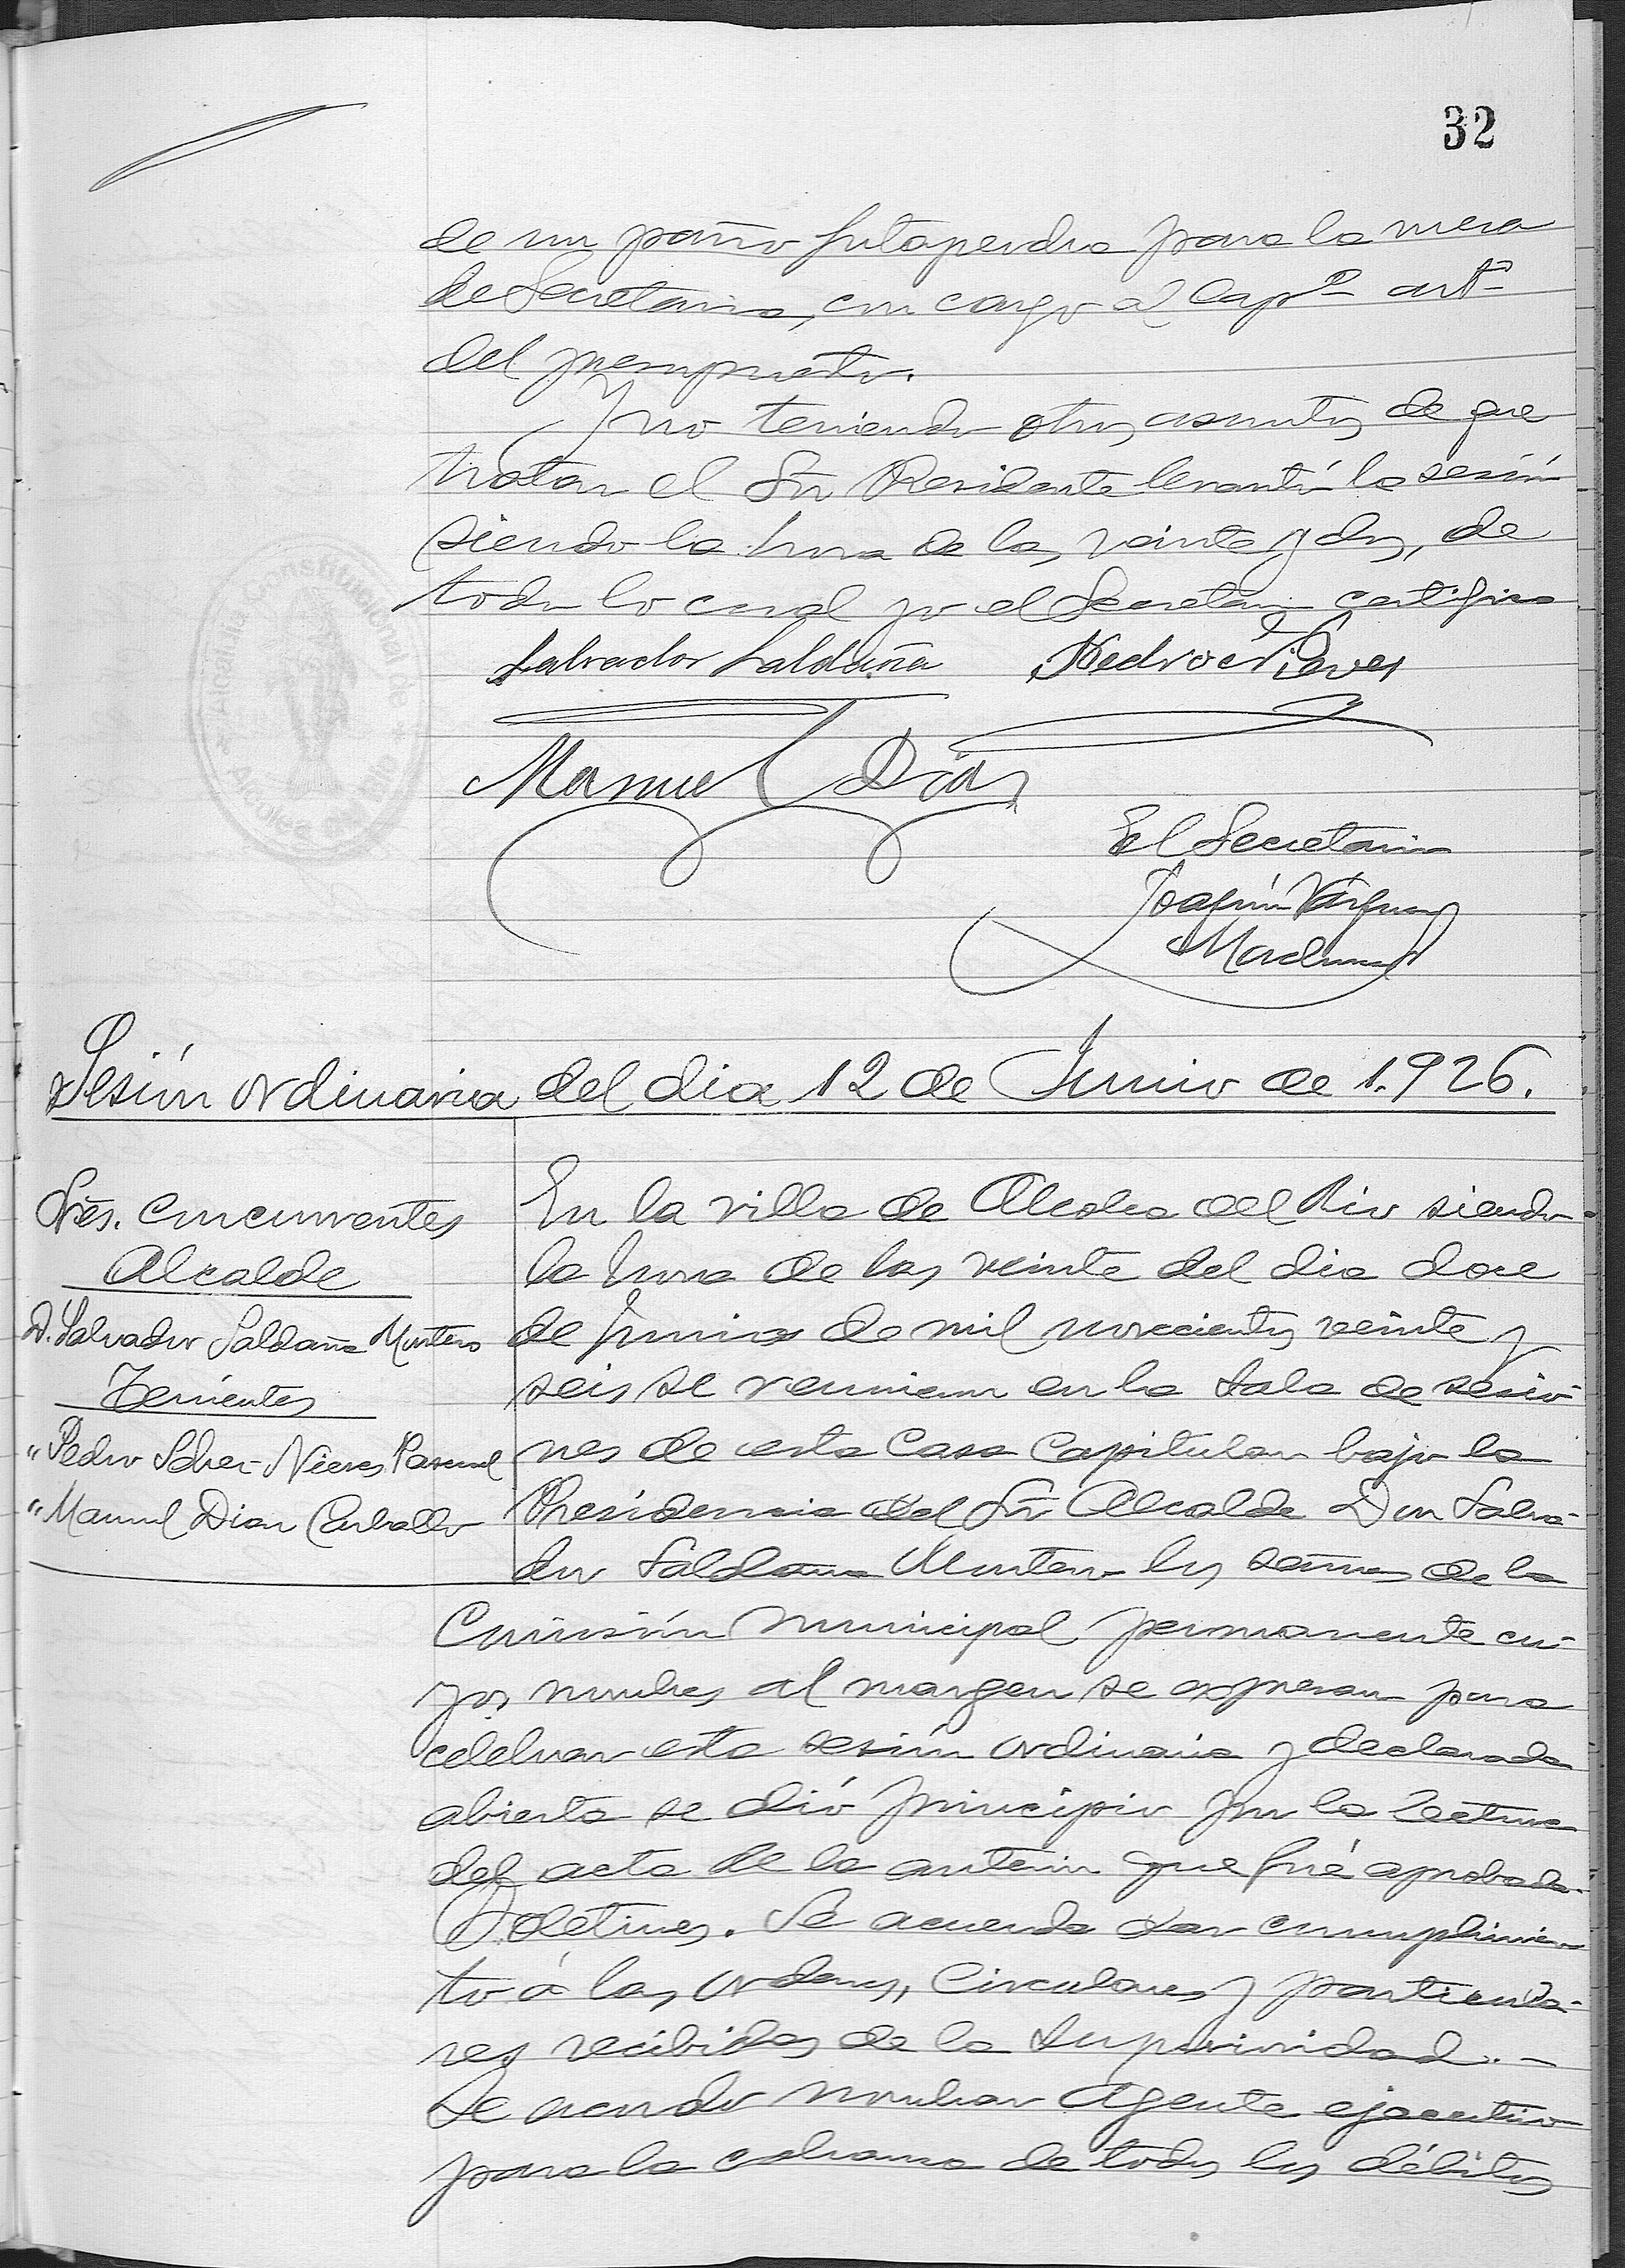 32
de un paño gutapercha para la mesa
de Secretaria, con cargo al Capº artº
del presupuesto.
Y no teniendo otros asuntos de que
tratar el Sñr Presidente levantó la sesión
siendo la hora de las veinte y dos, de
todo lo cual yo el Secretario certifico
Salvador Saldaña Pedro S Nieves
Manuel Díaz
El Secretario
Joaquín Vázquez
Alcaldia Constitucional de
Alcolea del Rio
Sesión ordinaria del dia 12 de Junio de 1.926.
Sres. Concurrentes
Alcalde
D. Salvador Saldaña Montero
Tenientes
" Pedro Schez-Nieves Pascual
" Manuel Diaz Carballo
En la villa de Alcolea del Rio siendo
la hora de las veinte del dia doce
de Junio de mil novecientos veinte y
seis se reunieron en la Sala de sesio-
nes de esta Casa Capitular bajo la
Presidencia del Sñr Alcalde Don Salva-
dor Saldaña Montero los señores de la
Comisión municipal permanente cu-
yos nombres al margen se expresan para
celebrar esta sesión ordinaria y declarada
abierta se dió principio por la lectura
del acta de la anterior que fué aprobada.
Boletines. Se acuerda dar cumplimien-
to á las ordenes, Circulares y particula-
res recibidas de la Superioridad. -
Se acordo nombrar Agente ejecutivo
para la cobranza de todos los débitos